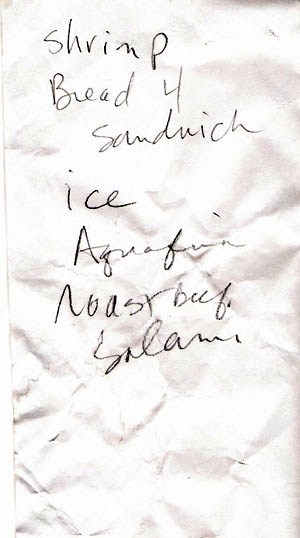 shrimp
Bread 4
Sandwich
ice
Aquafina
Roast Beef
Salami